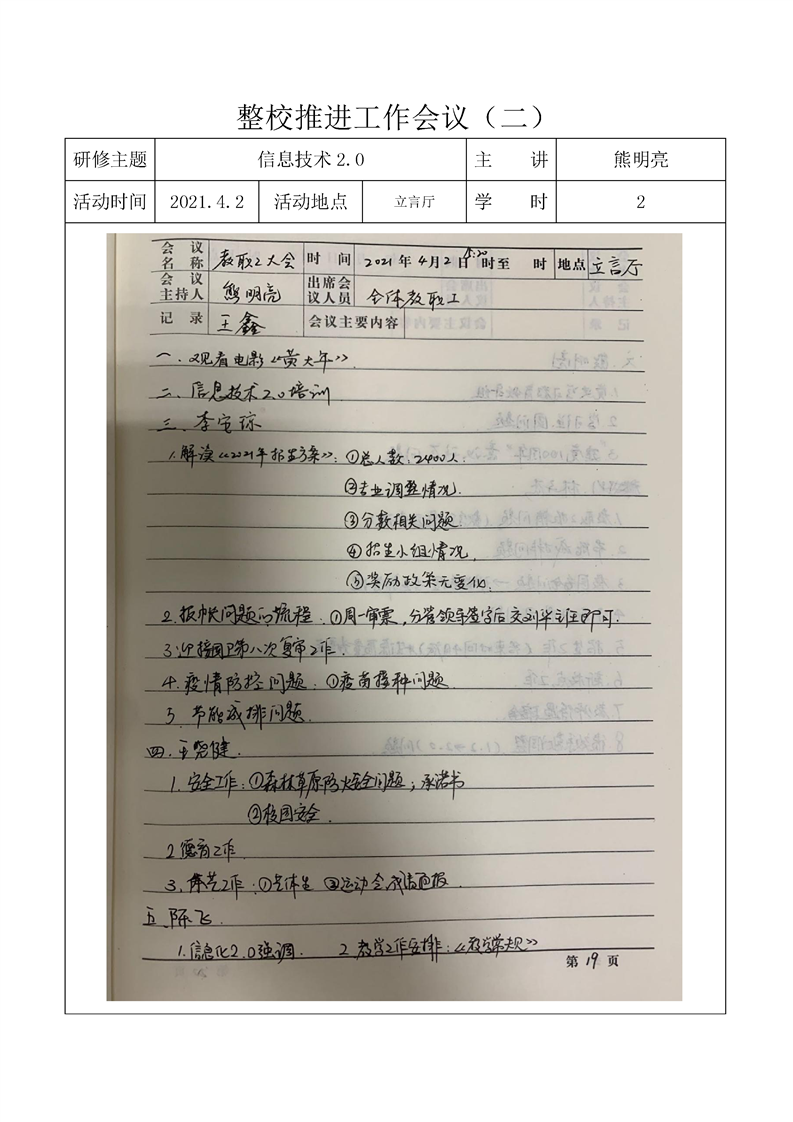 整校推进工作会议（二）
研修主题 信息技术2.0 主 讲 熊明亮
活动时间 2021.4.2 活动地点 立言厅 学 时 2
会 议 名 称 教职工大会 时 间 2021年4月2日 时至 时 地点 立言厅
会 议 主持人 熊明亮 出席会议人员 全体教职工
记 录 王鑫 会议主要内容
一、观看电影《黄大年》.
二、信息技术2.0培训
三、李宝琼
1.解读《2021年招生方案》: ①总人数:2400人.
②专业调整情况.
③分数相关问题
④招生小组情况,
⑤奖励政策无变化.
2.报帐问题的流程. ①周一审票,分管领导签字后交刘半主任即可.
3.迎接国卫第八次复审工作.
4.疫情防控问题: ①疫苗接种问题.
5.节能减排问题.
四.王晓健.
1.安全工作:①森林草原防火安全问题;承诺书
②校园安全.
2.德育工作.
3.体艺工作:① 体生 ②运动会
五.陈飞.
1.信息化2.0强调. 2.教学工作安排:《教学常规》
第 19 页